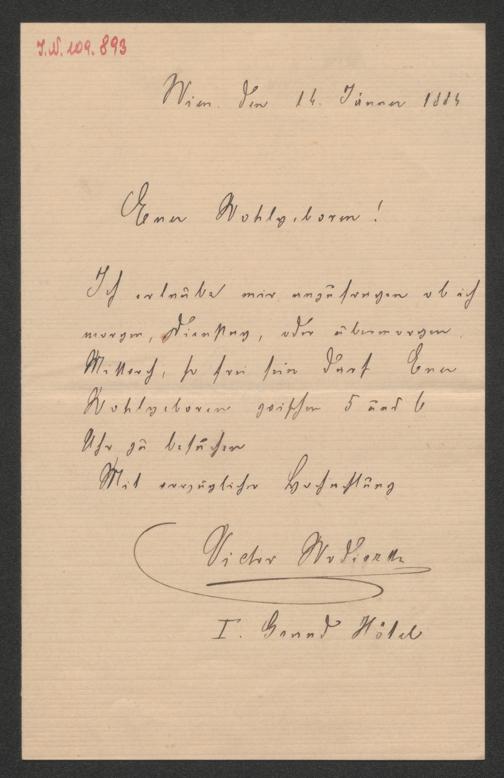 J.N. 109.893
Wien. den 14. Jänner 1884
Euer Wohlgeboren!
Ich erlaube mir anzufragen ob ich
morgen, Dienstag, oder übermorgen
Mittwoch, so frei sein darf Euer
Wohlgeboren zwischen 5 und 6
Uhr zu besuchen
Mit vorzüglicher Hochachtung
Victor
I. Grand Hôtel